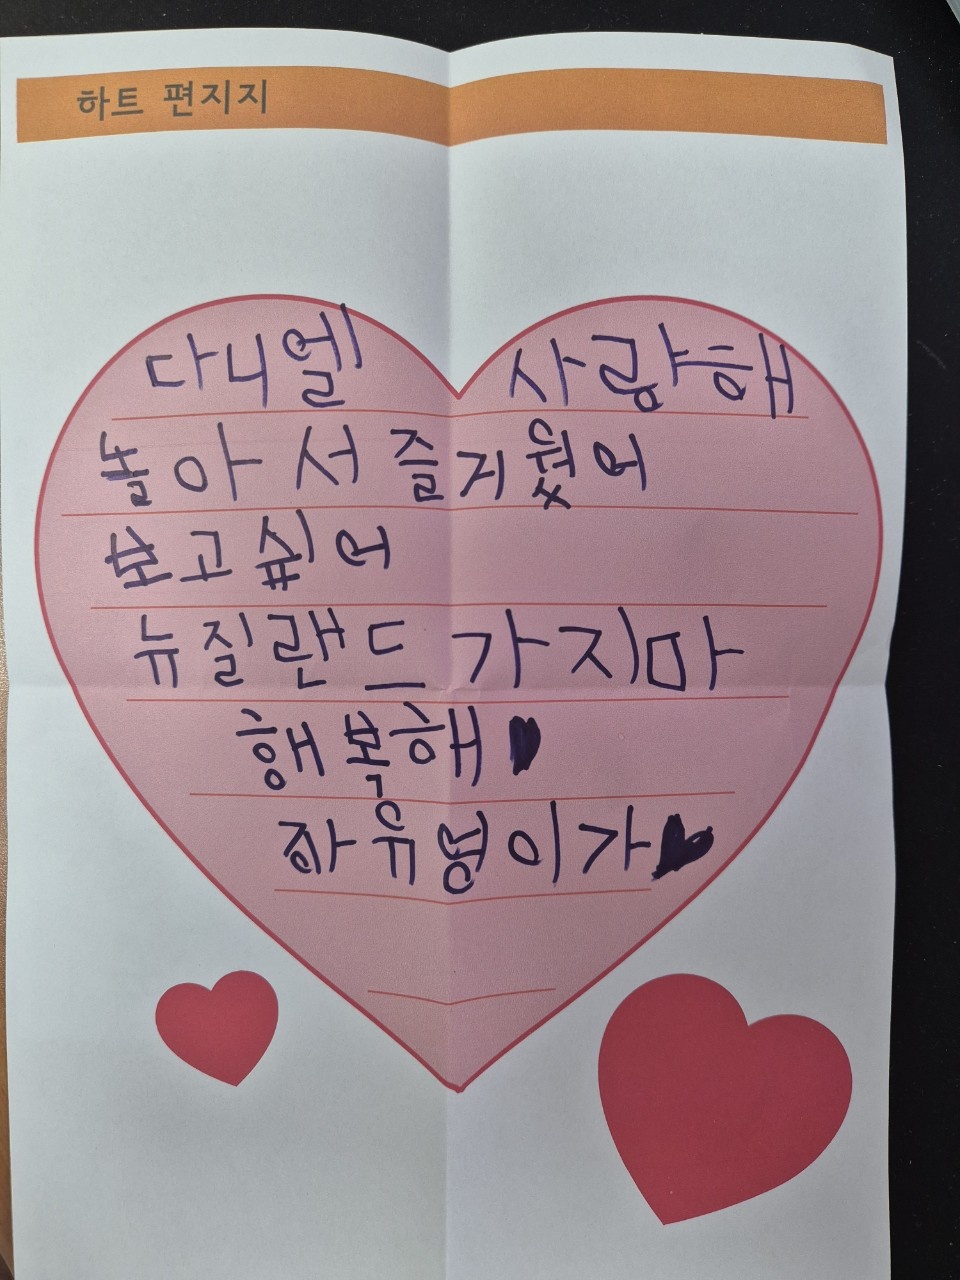 하트 편지지
다니엘 사랑해
놀아서 즐거웠어
보고싶어
뉴질랜드 가지마
행복해♥
좌유녕이가♥